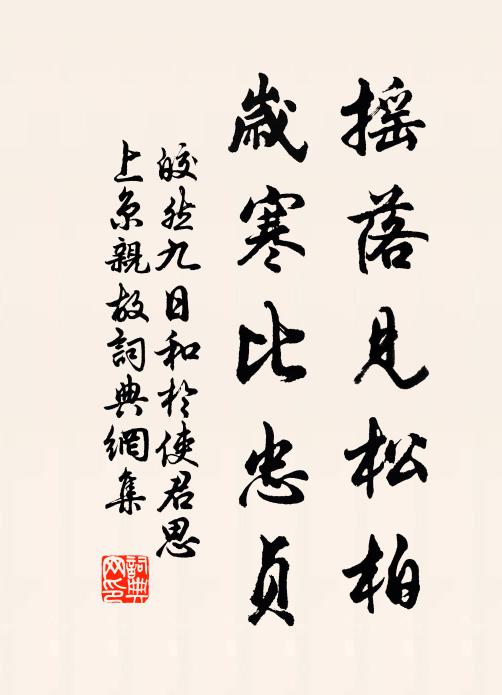 摇落见松柏
歲寒比忠貞
皎然九日和於使君思
上京親故詞典網集
詞典
网印